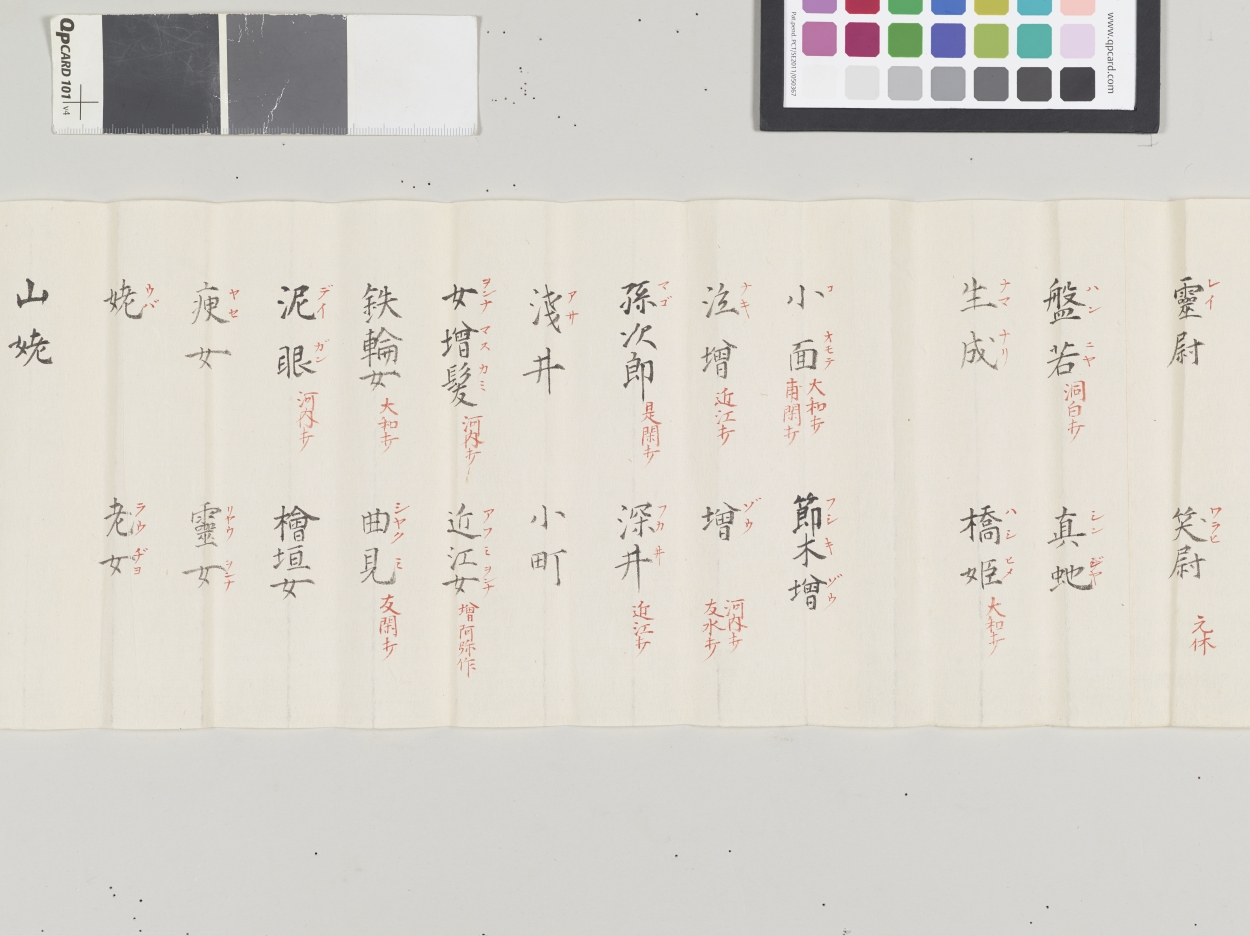 靈尉 レイ
笑尉 ワラヒ 元休
盤若 ハンニヤ 洞白打
真虵 シンジヤ
生成 ナマナリ
橋姫 ハシヒメ 大和打
小面 コオモテ 大和打 甫閑打
節木增 フシキゾウ
泣增 ナキ 近江打
增 ゾウ 河内打 友水打
孫次郎 マゴ 是閑打
深井 フカヰ 近江打
淺井 アサ
小町
女增髪 ヲンナマスカミ 河内打
近江女 アフミヲンナ 增阿弥作
鉄輪女 大和打
曲見 シヤクミ 友閑打
泥眼 デイガン 河内打
檜垣女
痩女 ヤセ
靈女 リヤウヲンナ
姥 ウバ
老女 ラウヂヨ
山姥
QPCARD 101 v4
Pat.pend. PCT/SE2011/050367
www.qpcard.com